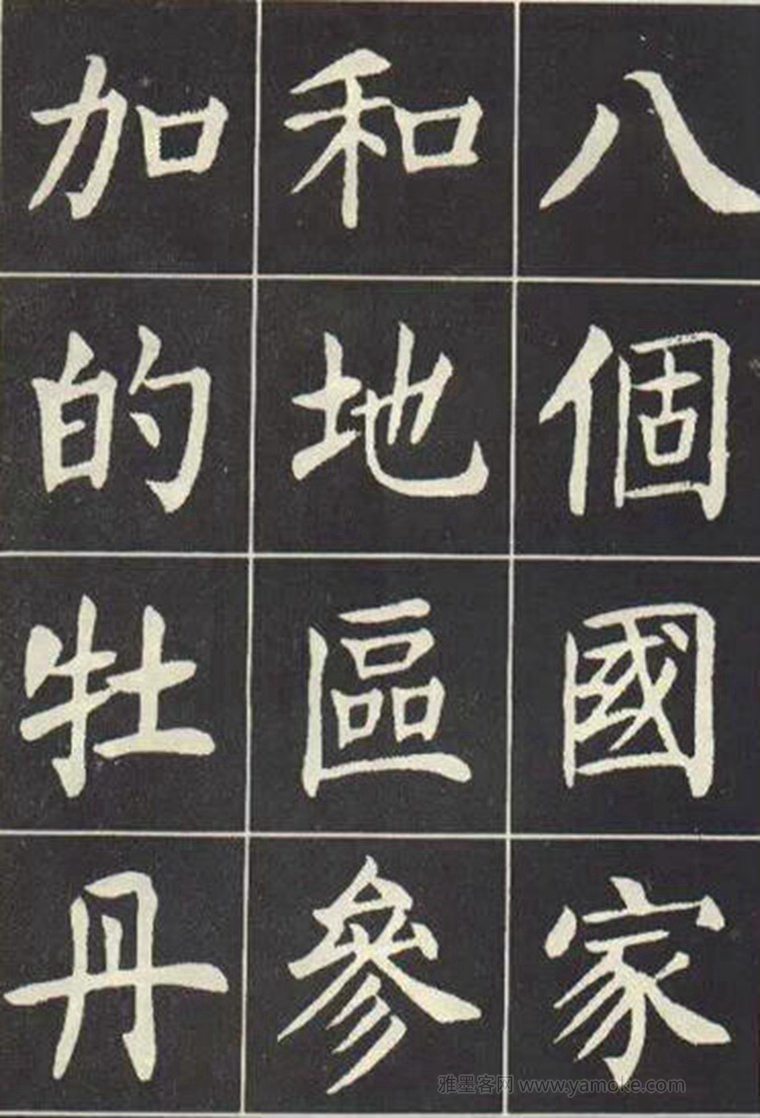 八個國家
和地區參
加的牡丹
雅墨客网 www.yamoke.com